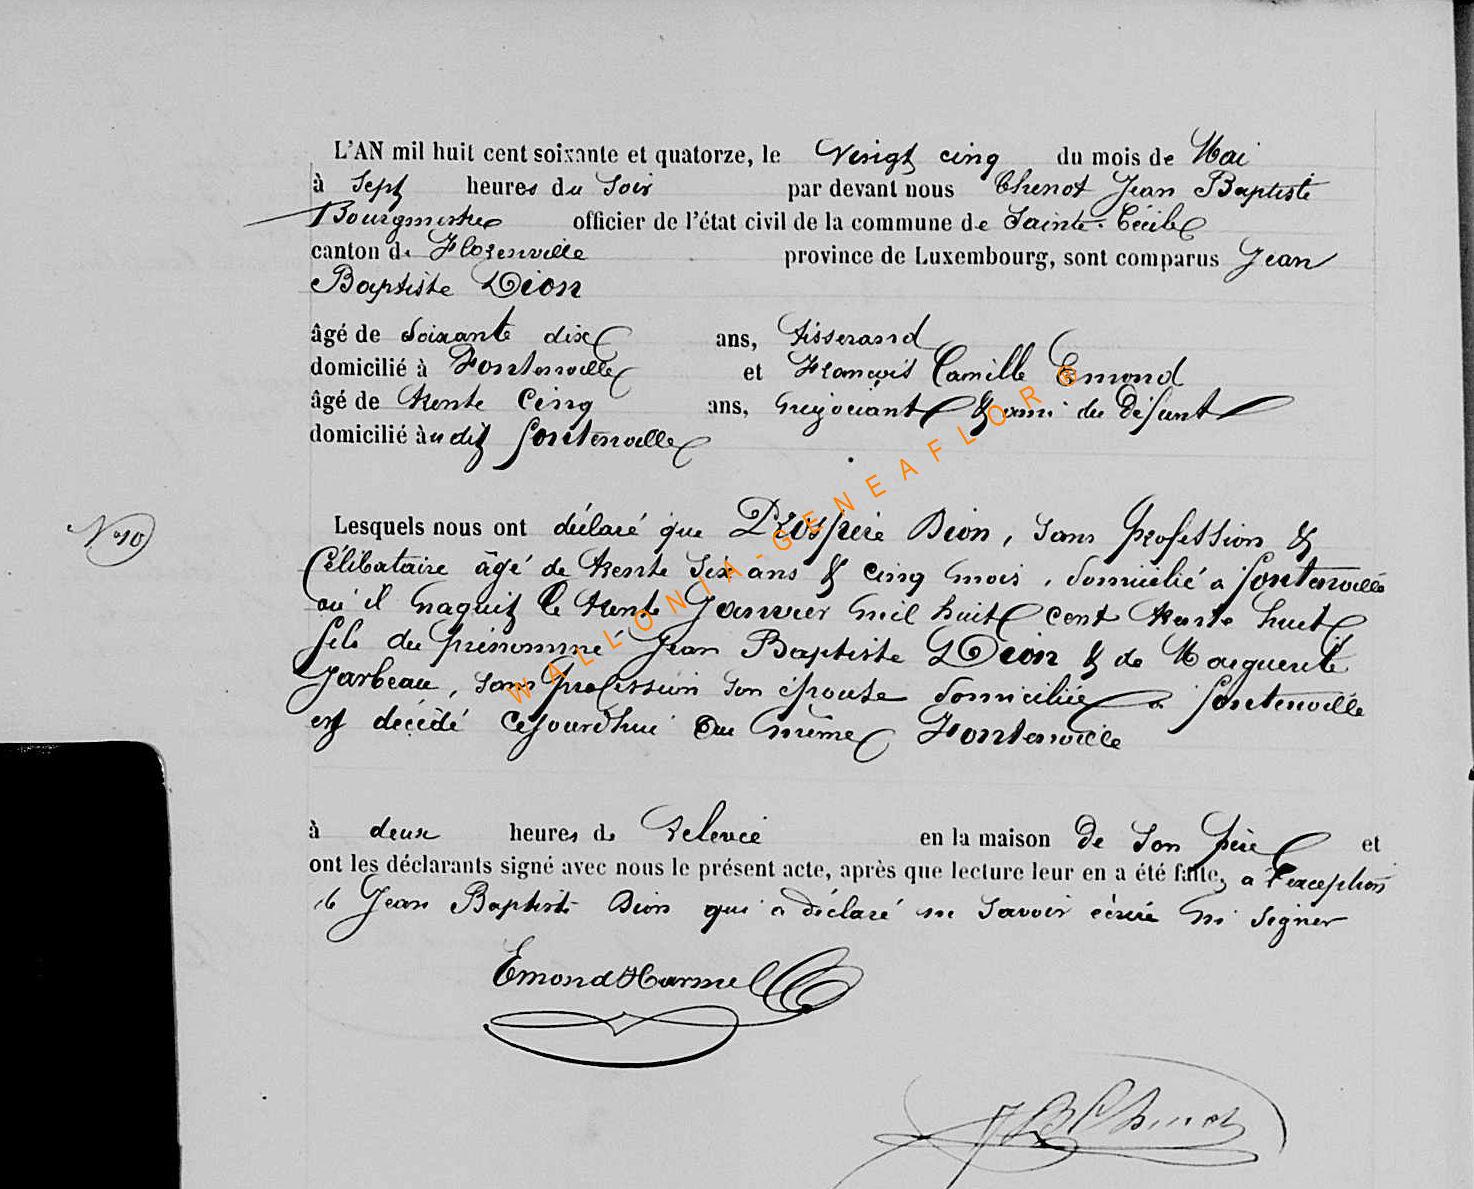 L'AN mil huit cent soixante et quatorze, le Vingt cinq du mois de Mai
à Sept heures du Soir par devant nous Chenot Jean Baptiste
Bourgmestre officier de l'état civil de la commune de Sainte-Cécile
canton de Florenville province de Luxembourg, sont comparus Jean
Baptiste Dion
âgé de Soixante dix ans, tisserand
domicilié à Fontenoille et François Camille Emond
âgé de trente Cinq ans, négociant & ami du Défunt
domicilié àu dit fontenoille
N 10
Lesquels nous ont déclaré que Prospère Dion, Sans profession &
Célibataire âgé de trente Six ans & cinq mois, domicilié a fontenoille
où il naquit le trente Janvier mil huit cent trente huit
fils du prénommé Jean Baptiste Dion & de Marguerite
Jarbeau, Sans profession Son épouse domiciliée a fontenoille
est décédé cejourd'hui au même Fontenoille
à deux heures de Relevée en la maison De Son père et
ont les déclarants signé avec nous le présent acte, après que lecture leur en a été faite, a l'exception
de Jean Baptiste Dion qui a déclaré ne Savoir écrire ni Signer
Emond Harmel
JB Chenot
WALLONIA-GENEAFLORE